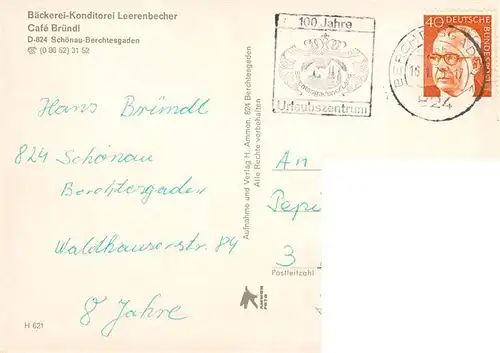 Bäckerei-Konditorei Leerenbecher
Café Bründl
D-824 Schönau-Berchtesgaden
☎ (0 86 52) 31 52
Hans Bründl
824 Schönau
Berchtesgaden
Waldhauserstr. 84
8 Jahre
H 621
Aufnahme und Verlag H. Ammon, 824 Berchtesgaden
Alle Rechte vorbehalten
100 Jahre
Urlaubszentrum
40
DEUTSCHE
BUNDESPOST
824
An
Pepi
3
Postleitzahl
AMMON